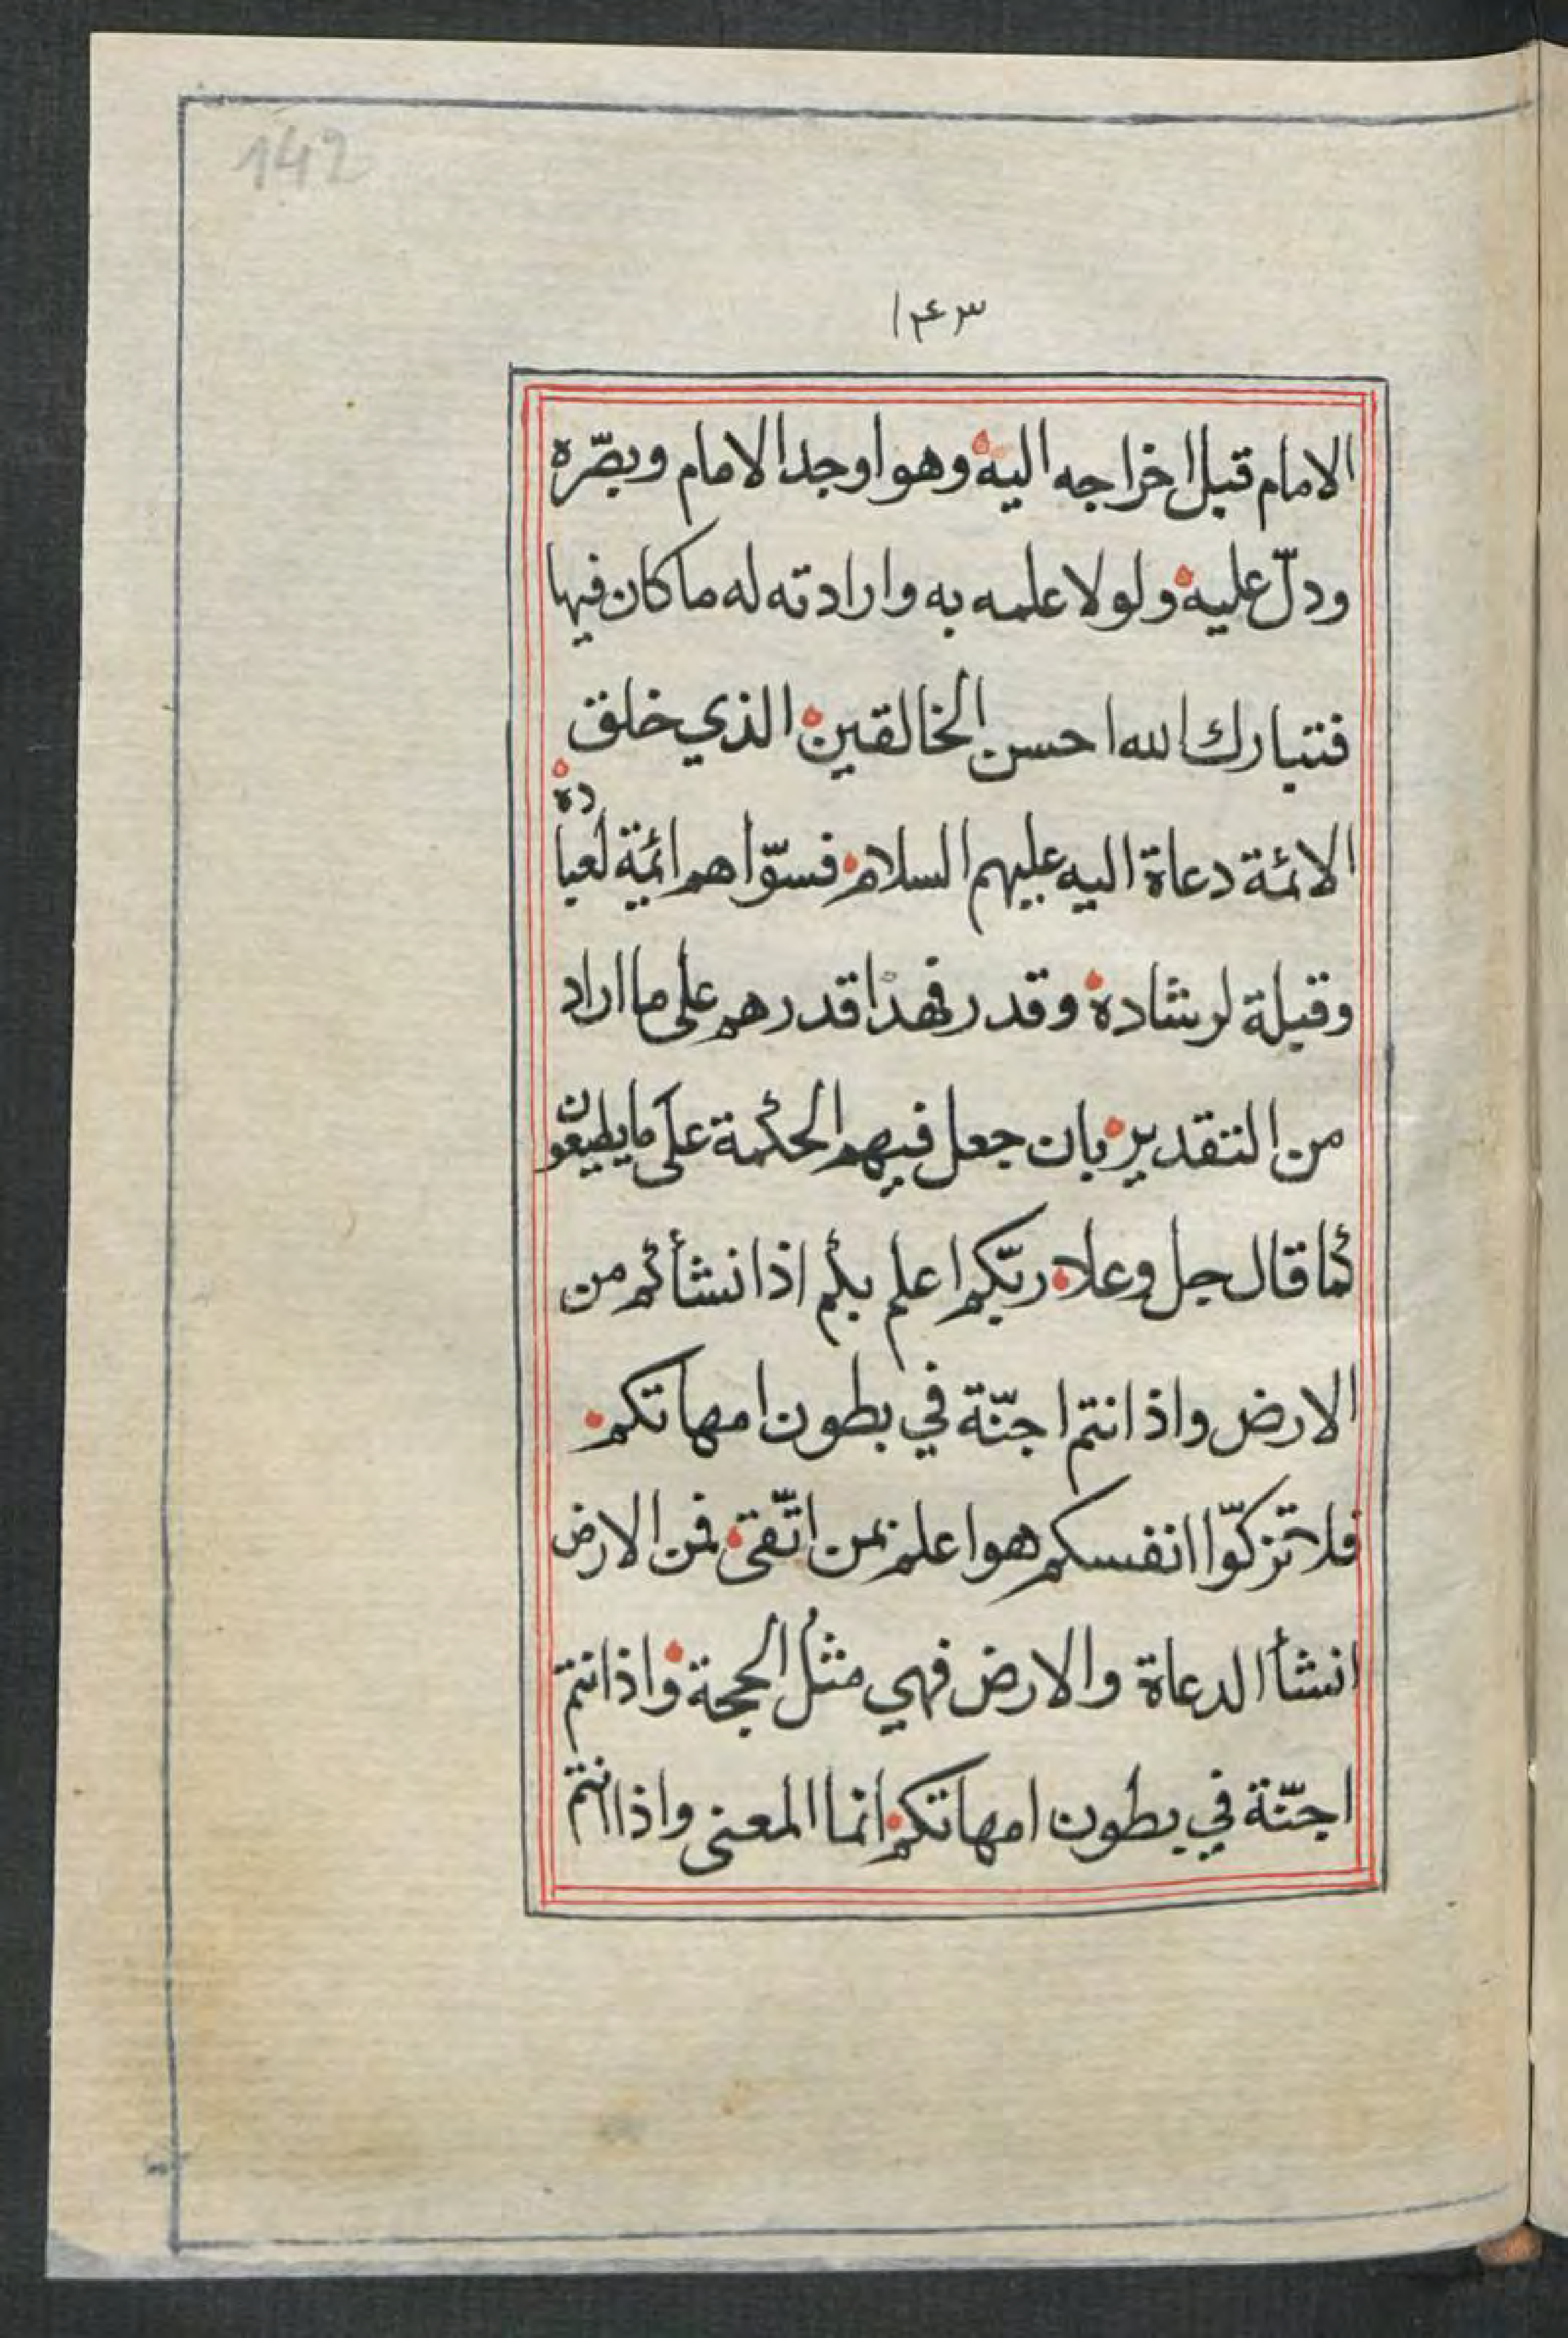 142
١٤٣
الامام قبل اخراجه اليه وهو اوجد الامام وبصّره
ودلّ عليه ولولا علمه به وارادته له ما كان فيها
فتبارك الله احسن الخالقين الذي خلق
الائمّة دعاة اليه عليهم السلام فسوّاهم ائمّة لعباده
وقبلة لرشاده وقدر فهذا قدرهم على ما اراد
من التقدير بان جعل فيهم الحكمة على ما يطيعون
كما قال جل وعلا ربّكم اعلم بكم اذ انشأكم من
الارض واذ انتم اجنّة في بطون امهاتكم
فلا تزكّوا انفسكم هو اعلم بمن اتّقى فمن الارض
انشأ الدعاة والارض فهي مثل الحجة واذ انتم
اجنّة في بطون امهاتكم انما المعنى واذا انتم